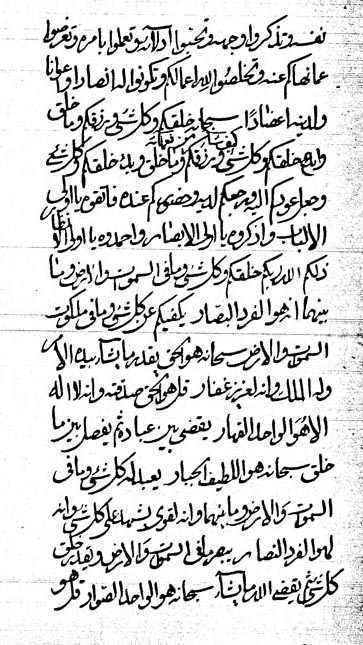 نفسه وتذكروا وجهه وتحبوا ادلاءه وتعملوا بامره وتعرضوا
عما نهاكم عنه وتخلصوا لله اعمالكم وتكونوا له انصادا واعوانا
ولدينه سبحانه خلقكم وكل شيء ورزقكم وما خلق
خلقكم وكل شيء ورزقكم وما خلق خلقكم وكل شيء
وجعل عودكم اليه ومرجعكم لديه عنده فاتقوه يا اولي
الالباب واذكروه يا اولي الابصار واحمدوه يا اولي
ذلكم الله ربكم خلقكم وكل شيء وما في السموات والارض وما
بينهما انه هو الفرد النصار يكفيكم عن كل شيء وما في ملكوت
السموات والارض سبحانه هو الحق يقدر ما يشاء بيده الامر
وله الملك وانه لعزيز غفار قل هو الحق وانه لا اله
الا هو الواحد القهار يقضي بين عباده ثم يفصل بين ما
خلق سبحانه هو اللطيف الجبار يعبد له كل شيء وما في
السموات والارض وما بينهما وانه لقوي على كل شيء وانه
لهو الفرد النصار يبصر ما في السموات والارض ويقدر خلق
كل شيء ثم يقضي الله ما يشاء سبحانه هو الواحد الصوار قل هو